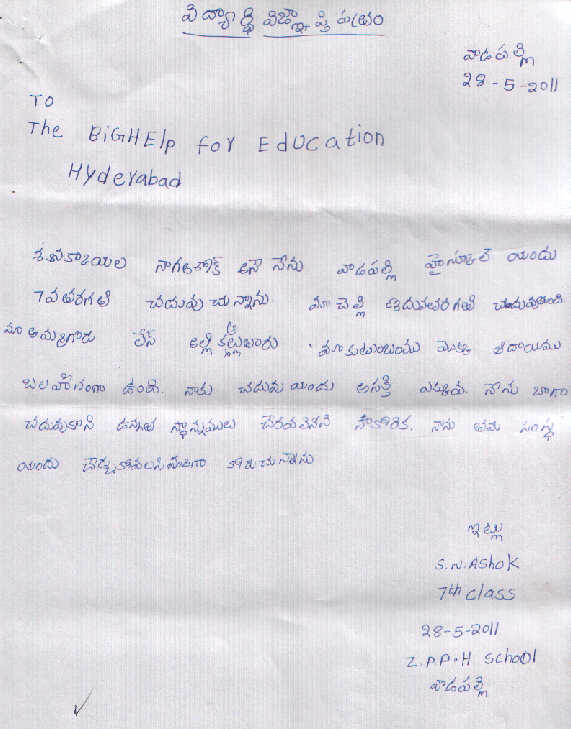 విద్యార్థి విజ్ఞాప్తి పత్రం
వాడపల్లి
28-5-2011
TO
The BiGHElp for Education
Hyderabad
నాగఅశోక్ అనే నేను వాడపల్లి హైస్కూల్ యందు
7వతరగతి చదువుచున్నాను మా చెల్లి ఐదువతరగతి చదువుతుంది
మా అమ్మగారు లేస్ అల్లికల్లుతారు. మా కుటుంబము యొక్క ఆదాయము
బలహీనంగా ఉంది. నాకు చదువు యందు ఆసక్తి ఎక్కువ. నేను బాగా
చదువుకొని ఉన్నత స్థానములు చేరవలెనని నాకోరిక. నను తమ సంస్థ
యందు చేర్చుకోవలసినదిగా కోరుచున్నాను
ఇట్లు
S.N.Ashok
7th class
28-5-2011
Z.P.P.H School
వాడపల్లి